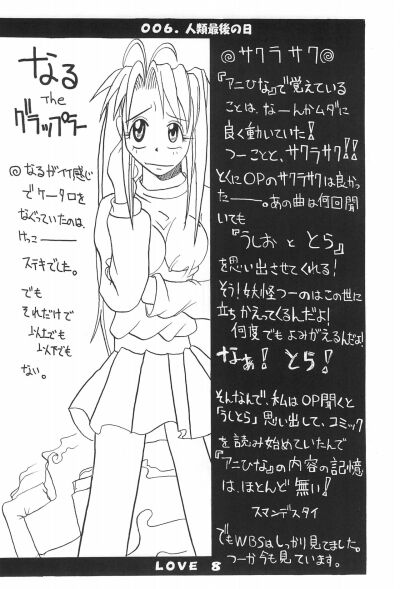 006. 人類最後の日
なる
The
グラップラー
◎なるがイイ感じ
でケータロを
なぐっていたのは、
けっこ――
ステキでした。
でも
それだけで
以上でも
以下でも
ない。
◎サクラサク◎
『アニひな』で覚えている
ことは、なーんかムダに
良く動いていた!
つーことと、サクラサク!!
とくにOPのサクラサクは良かっ
たー――。あの曲は何回聞
いても
『うしお と とら』
を思い出させてくれる!
そう!妖怪つーのはこの世に
立ちかえってくるんだよ!
何度でも よみがえるんだよ!
なぁ! とら!
そんなんで、私はOP聞くと
『うしとら』思い出して、コミック
を読み始めていたんで
『アニひな』の内容の記憶
は、ほとんど 無い!
スマンデスタイ
でもWBSはしっかり見てました。
つーか今も見ています。
LOVE 8